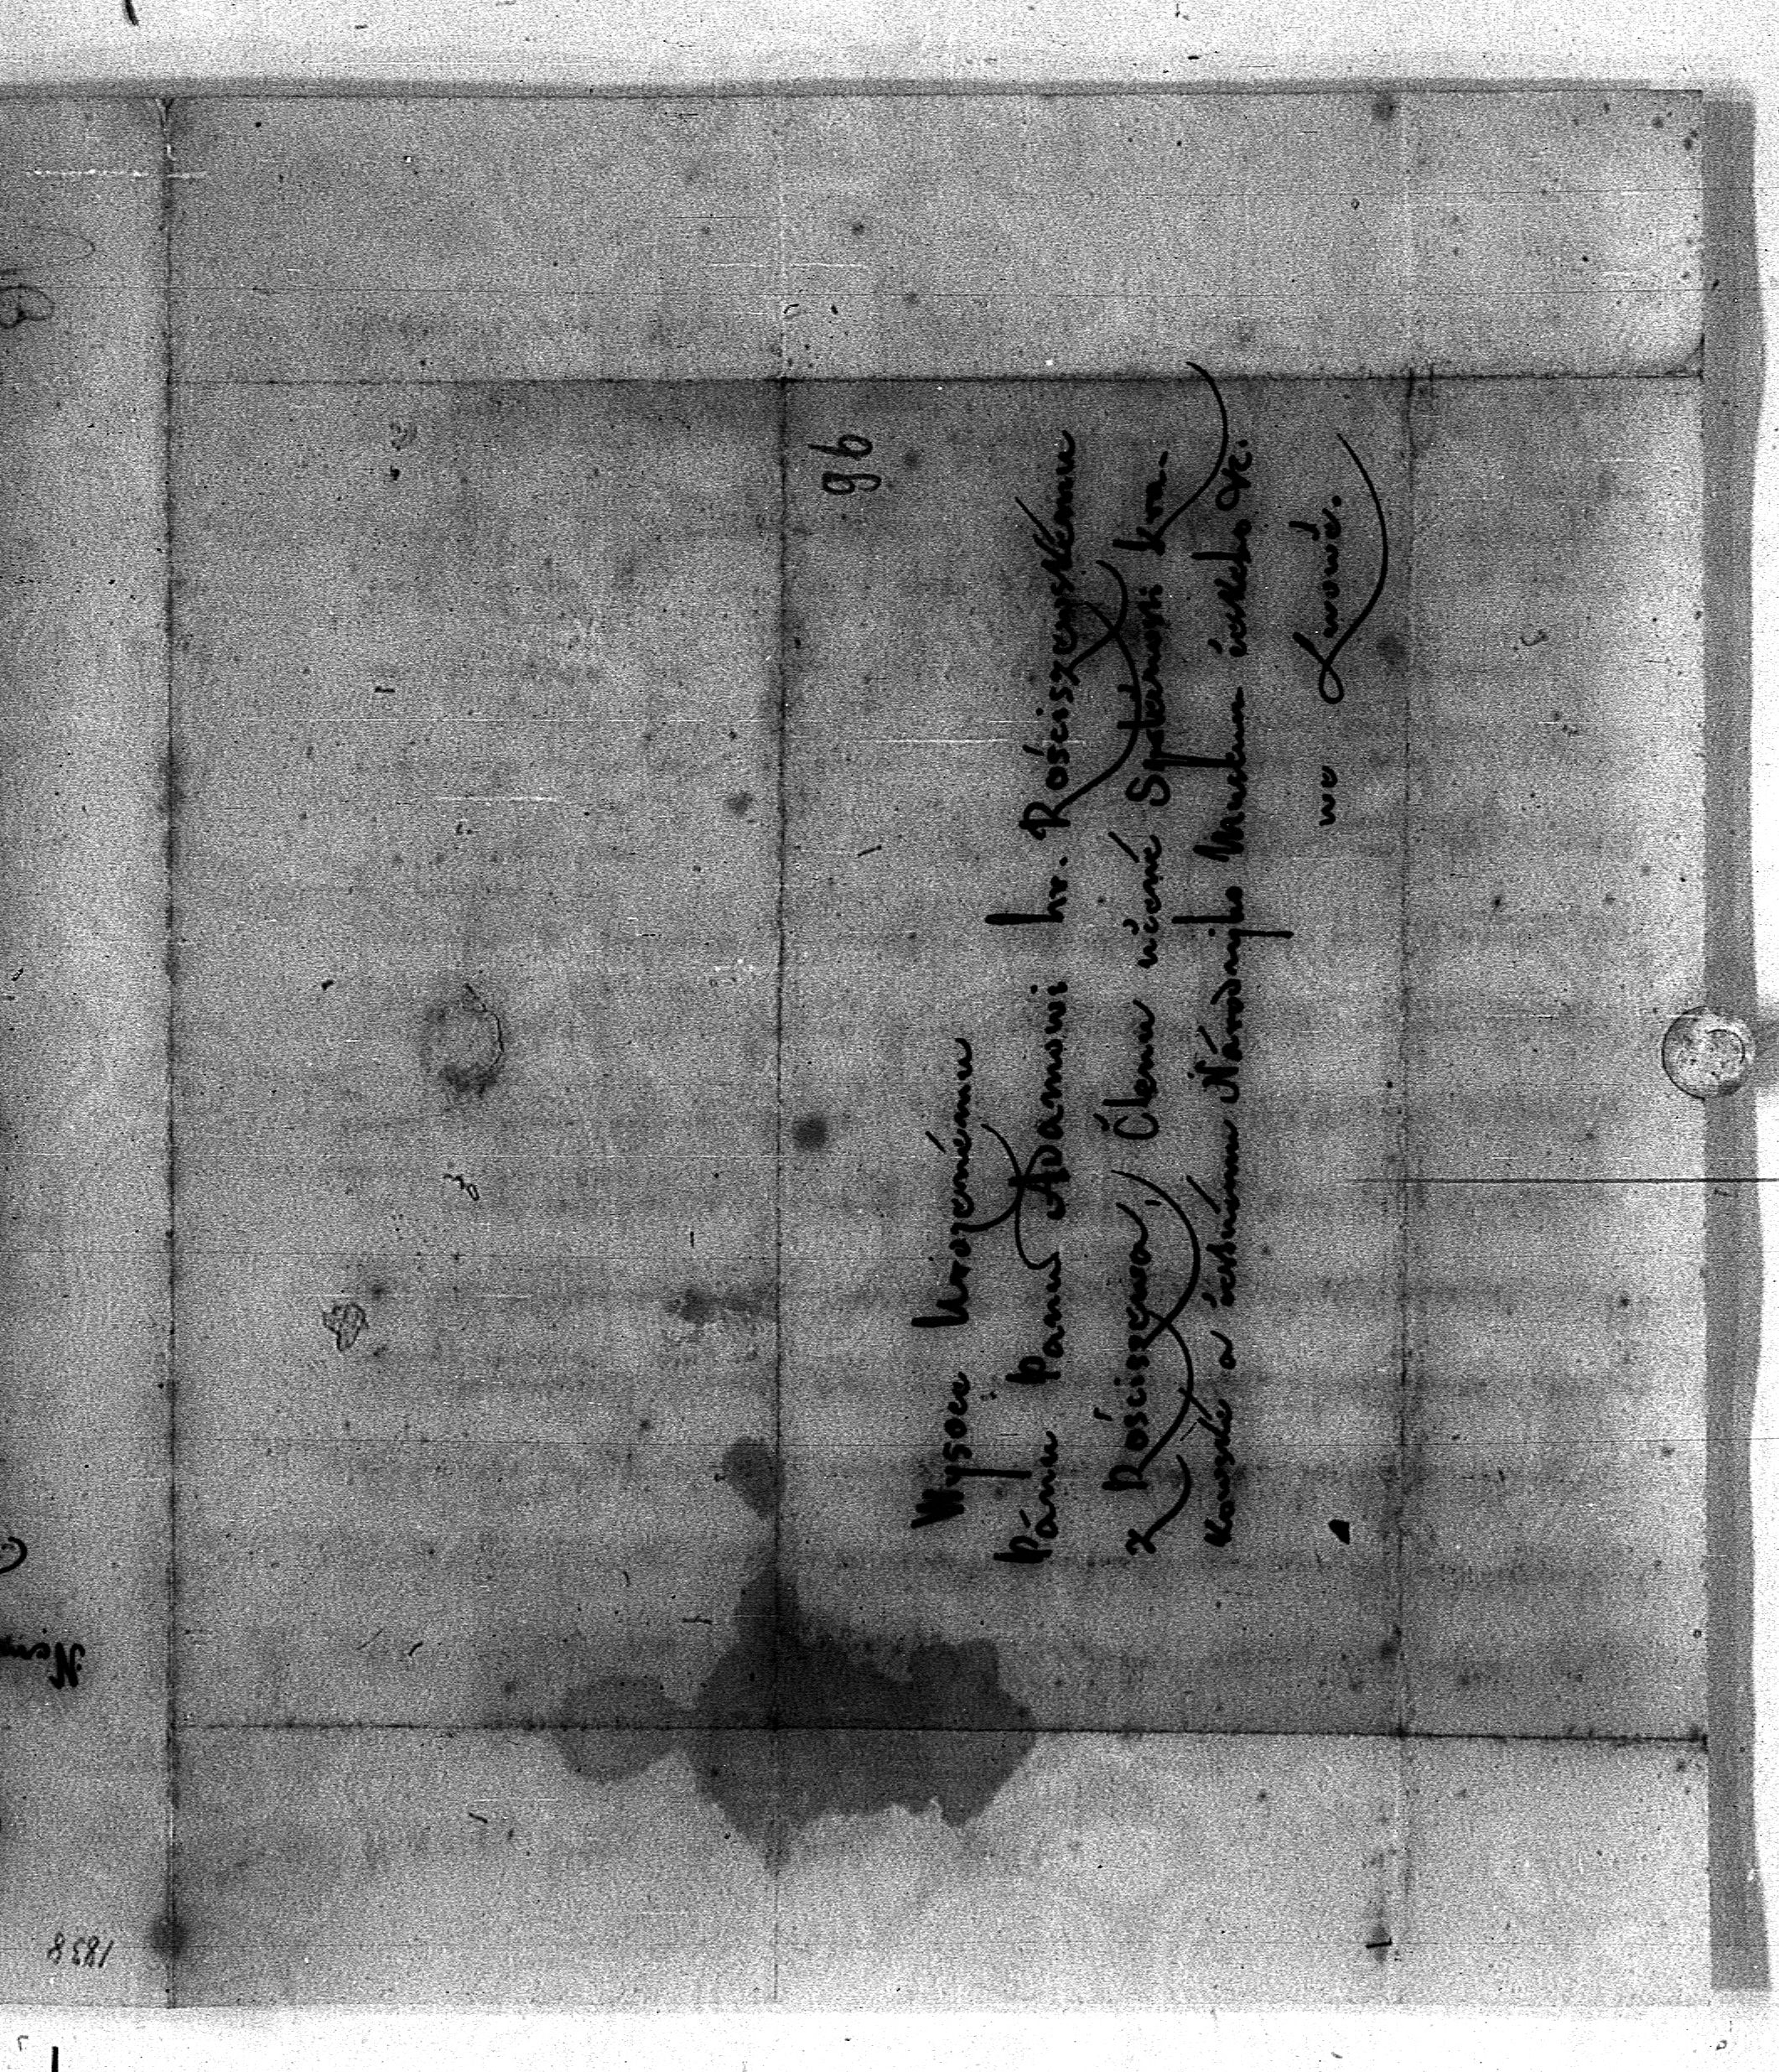 96
Wysoce Urozenému
Pánu Panu Adamowi hr. Rościszewskému
z Rościszewa, Členu učené Společnosti Kra-
kowské a Národnjho Museum českeho &c.
we Lwowě.
1838